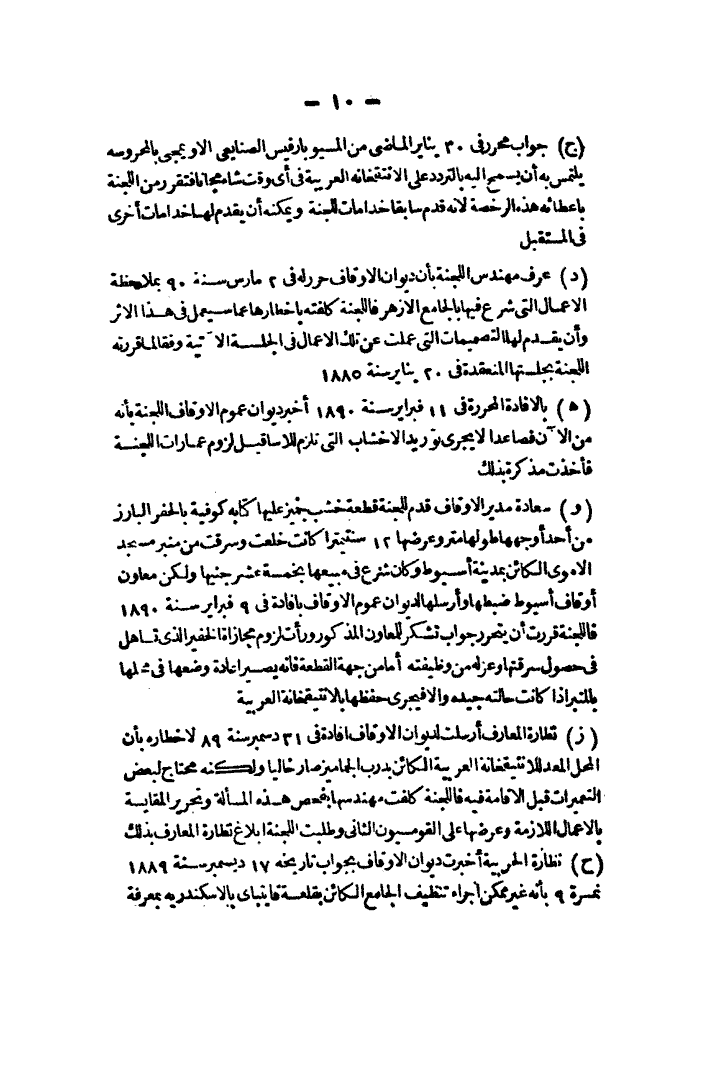 — ١٠ —
(ج) جواب محرر فى ٣٠ يناير الماضى من المسيو بارفيس الصنايعى الاويمجى بالمحروسه
يلتمس به أن يسمح اليه بالتردد على الانتيقخانه العربية فى أى وقت شاء مجانا فتقرر من اللجنة
باعطائه هذه الرخصة لانه قدم سابقا خدامات للجنة ويمكنه أن يقدم لها خدامات أخرى
فى المستقبل
(د) عرف مهندس اللجنة بأن ديوان الاوقاف حرر له فى ٢ مارس سنة ٩٠ بملاحظة
الاعمال التى شرع فيها بالجامع الازهر فاللجنة كلفته باخطارها عما سيعمل فى هذا الاثر
وأن يقدم لها التصميمات التى عملت عن تلك الاعمال فى الجلسة الآتية وفقا لما قررته
اللجنة بجلستها المنعقدة فى ٢٠ يناير سنة ١٨٨٥
(ه) بالافادة المحررة فى ١١ فبراير سنة ١٨٩٠ أخبر ديوان عموم الاوقاف اللجنة بأنه
من الآن فصاعدا لا يجرى توريد الاخشاب التى تلزم للاساقيل لزوم عمارات اللجنة
فأخذت مذكرة بذلك
(و) سعادة مدير الاوقاف قدم للجنة قطعة خشب يتميز عليها كتابه كوفية بالحفر البارز
من أحد أوجهها طولها متر وعرضها ١٢ سنتيمترا كانت خلعت وسرقت من منبر مسجد
الاموى الكائن بمدينة أسيوط وكان شرع فى مبيعها بخمسة عشر جنيها ولكن معاون
أوقاف أسيوط ضبطها وأرسلها لديوان عموم الاوقاف بافادة فى ٩ فبراير سنة ١٨٩٠
فاللجنة قررت أن يتحرر جواب تشكر للمعاون المذكور ورأت لزوم مجازاة الخفير الذى تساهل
فى حصول سرقتها وعزله من وظيفته أما من جهة القطعة فانه يصير اعادة وضعها فى محلها
بالمنبر اذا كانت حالته جيده والا فيجرى حفظها بالانتيقخانة العربية
(ز) نظارة المعارف أرسلت لديوان الاوقاف افادة فى ٣١ دسمبر سنة ٨٩ لاخطاره بأن
المحل المعد للانتيقخانة العربية الكائن بدرب الجماميز صار خاليا ولكنه محتاج لبعض
التعميرات قبل الاقامة فيه فاللجنة كلفت مهندسها بفحص هذه المسألة وتحرير المقايسة
بالاعمال اللازمة وعرضها على القومسيون الثانى وطلبت اللجنة ابلاغ نظارة المعارف بذلك
(ح) نظارة الحربية أخبرت ديوان الاوقاف بجواب تاريخه ١٧ ديسمبر سنة ١٨٨٩
نمرة ٩ بأنه غير ممكن اجراء تنظيف الجامع الكائن بقلعة قايتباى بالاسكندريه بمعرفة